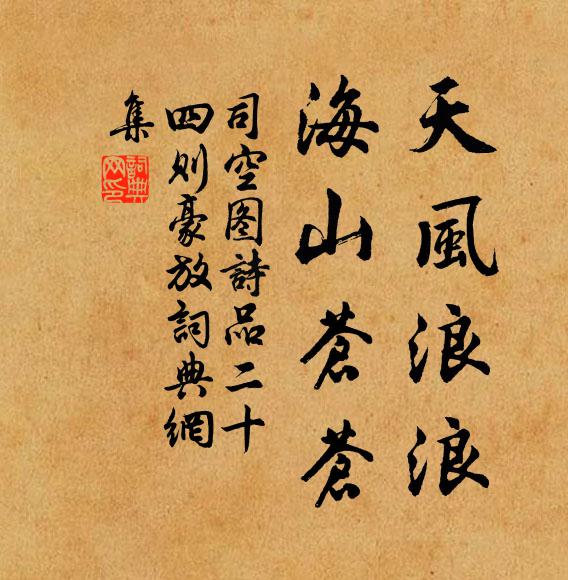 天風浪浪
海山蒼蒼
司空图詩品二十
四则豪放詞典網
集
詞典
网印